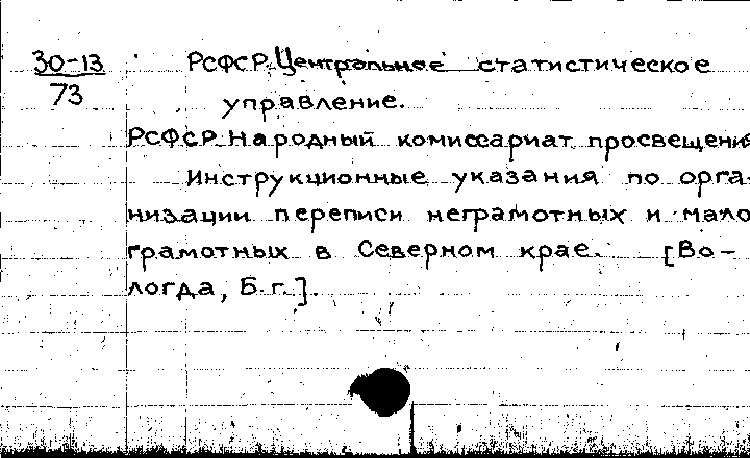 30-13
73
РСФСР. Центральное статистическое
управление.
РСФСР. Народный комиссариат просвещени
Инструкционные указания по орга-
низации переписи неграмотных и мало
грамотных в Северном крае. [Во-
логда, Б.г.].